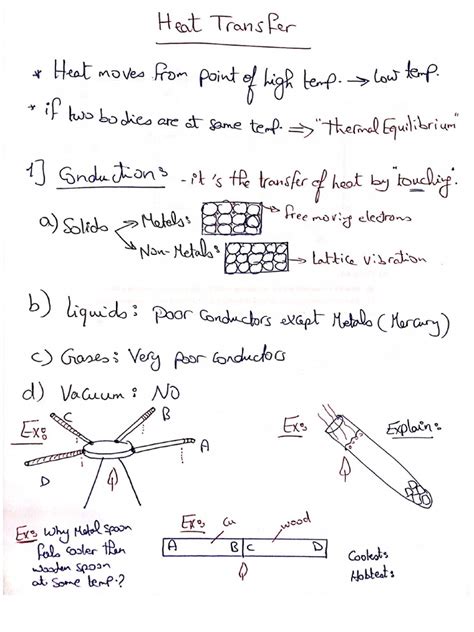 Heat Transfer
* Heat moves from point of high temp. → low temp.
* if two bodies are at same temp. ⇒ "Thermal Equilibrium"
1] Conduction: - it's the transfer of heat by "touching".
a) Solids → Metals: → free moving electrons
→ Non-Metals: → Lattice vibration
b) Liquids: poor conductors except Metals (Mercury)
c) Gases: Very poor conductors
d) Vacuum: NO
Ex: C B A D
Ex: Explain:
Ex: Why Metal spoon
feels cooler than
wooden spoon
at same temp.?
Ex: Cu wood
A B C D
Coolest:
Hottest: